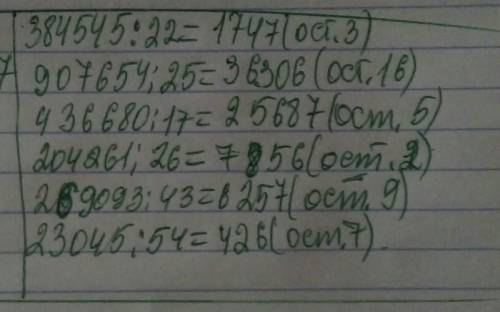 384545:22=1747(ост.3)
7 907654:25=36306(ост.16)
436680:17=25687(ост.5)
204261:26=7856(ост.2)
269093:43=6257(ост.9)
23045:54=426(ост.7)